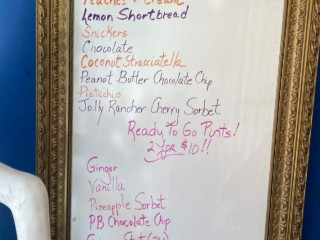 Peaches + Cream
Lemon Shortbread
Snickers
Chocolate
Coconut Stracciatella
Peanut Butter Chocolate Chip
Pistachio
Jolly Rancher Cherry Sorbet
Ready To Go Pints!
2 for $10!!
Ginger
Vanilla
Pineapple Sorbet
PB Chocolate Chip